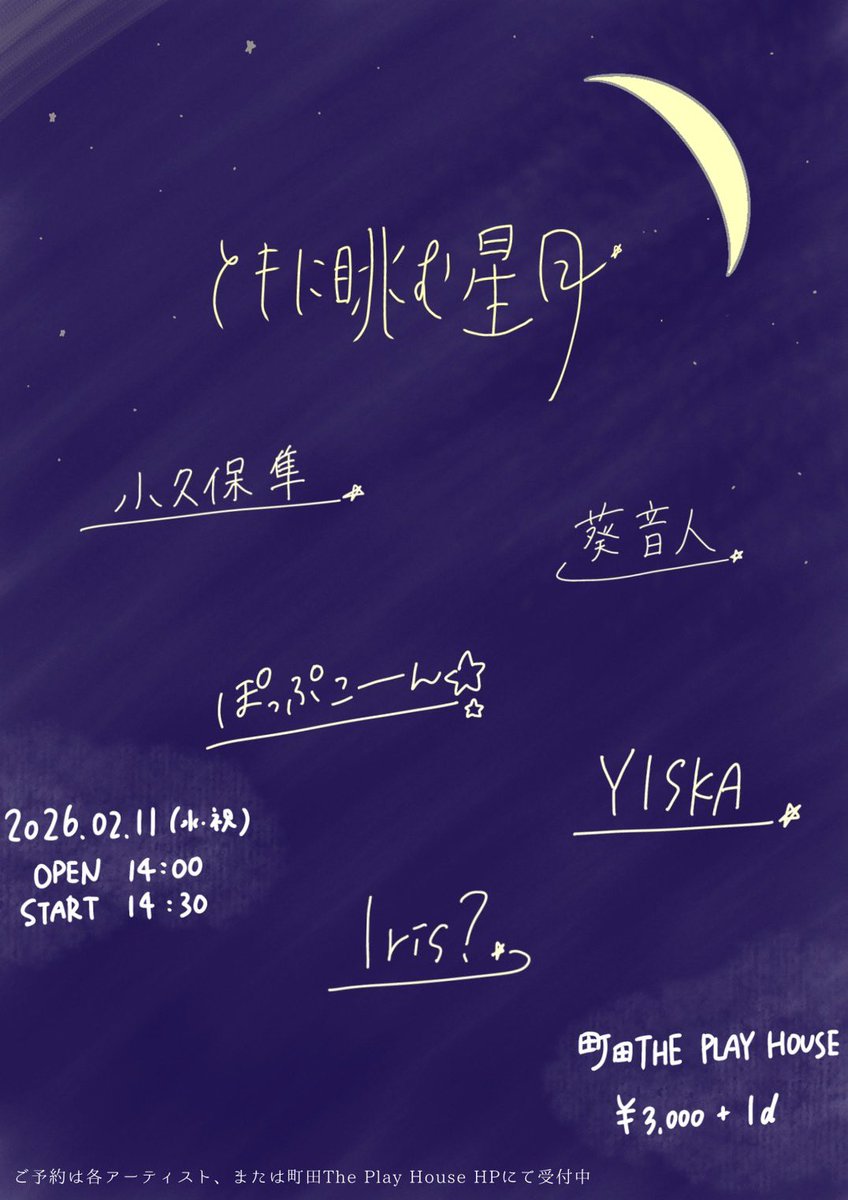 ともに眺む星月
小久保 隼
葵 音人
ぽっぷこーん☆
YISKA
2026.02.11(水・祝)
OPEN 14:00
START 14:30
Iris?
町田THE PLAY HOUSE
¥3,000 + 1d
ご予約は各アーティスト、または町田The Play House HPにて受付中